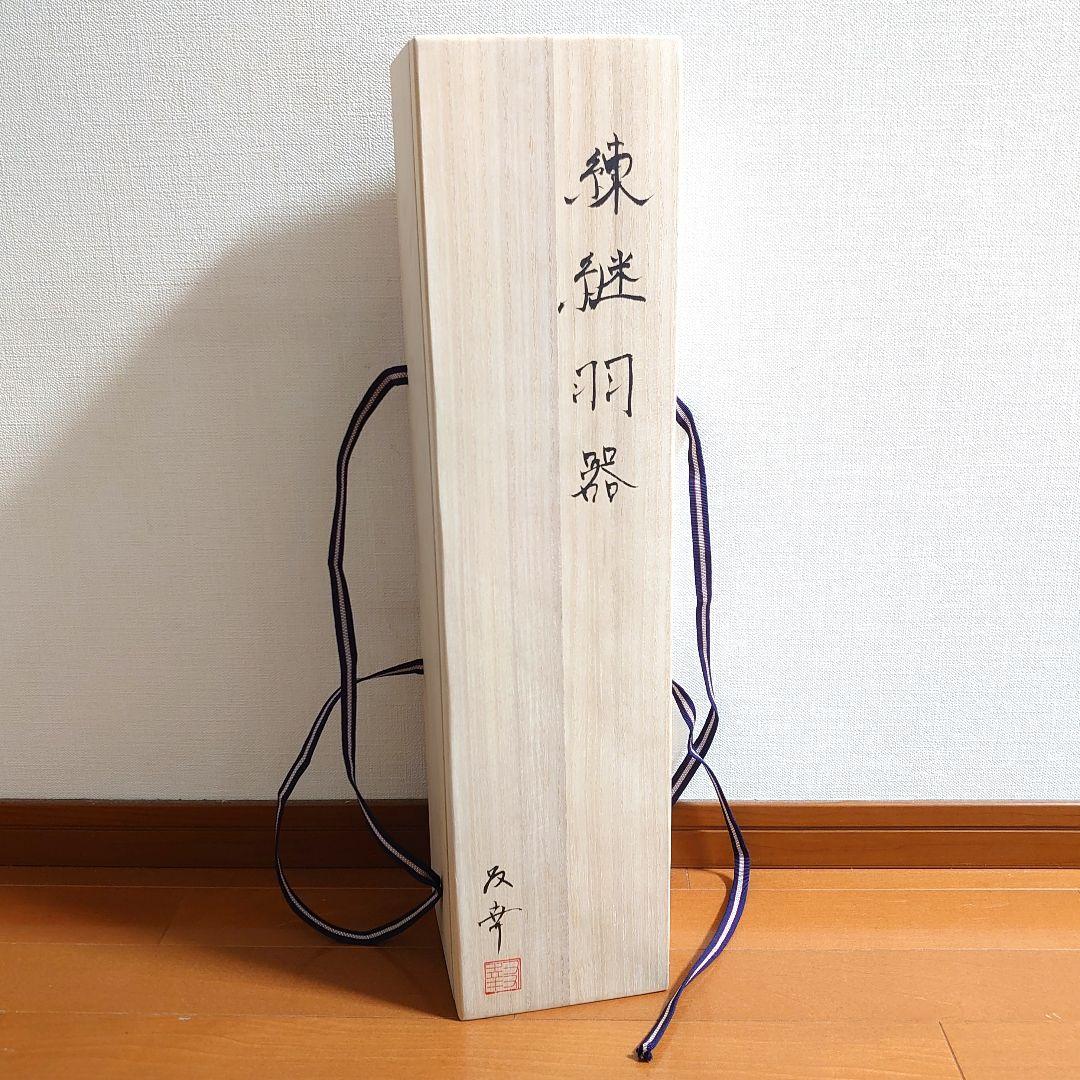 練継羽器
友幸